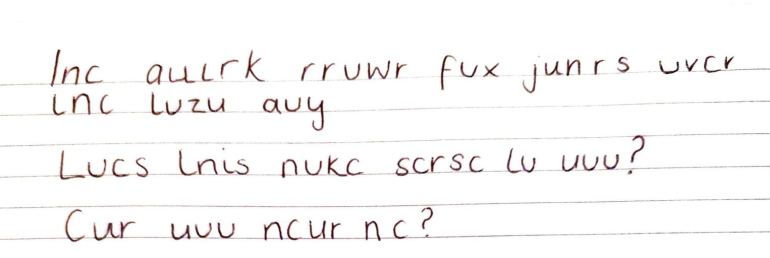 Inc auırk rruwr fux junrs uvcr
ınc luzu auy
Lucs lnis nukc scrsc lu uuu?
Cur uuu ncur nc?